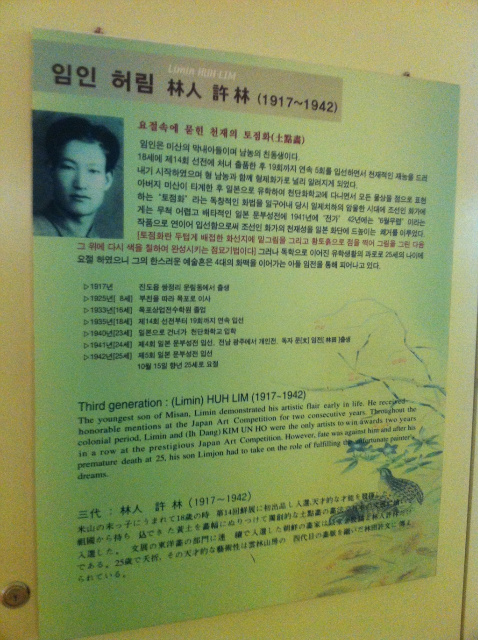 Limin HUH LIM
임인 허림 林人 許林 (1917~1942)
요절속에 묻힌 천재의 토점화(土點畵)
임인은 미산의 막내아들이며 남농의 친동생이다.
18세에 제14회 선전에 처녀 출품한 후 19회까지 연속 5회를 입선하면서 천재적인 재능을 드러
내기 시작하였으며 형 남농과 함께 형제화가로 널리 알려지게 되었다.
아버지 미산이 타계한 후 일본으로 유학하여 천단화학교에 다니면서 모든 물상을 점으로 표현
하는 "토점화" 라는 독창적인 화법을 일구어내 당시 일제치하의 암울한 시대에 조선인 화가에
게는 무척 어렵고 배타적인 일본 문부성전에 1941년에 "전가" 42년에는 "6월무렵" 이라는
작품으로 연이어 입선함으로써 조선인 화가의 천재성을 일본 화단에 드높이는 쾌거를 이루었다.
[토점화란 두텁게 배접한 화선지에 밑그림을 그리고 황토흙으로 점을 찍어 그림을 그린 다음
그 위에 다시 색을 칠하여 완성시키는 점묘기법이다] 그러나 독학으로 이어진 유학생활의 과로로 25세의 나이에
요절 하였으니 그의 한스러운 예술혼은 4대의 화맥을 이어가는 아들 임전을 통해 피어나고 있다.
▷1917년 진도읍 쌍정리 운림동에서 출생
▷1925년[ 8세] 부친을 따라 목포로 이사
▷1933년[16세] 목포상업전수학원 졸업
▷1935년[18세] 제14회 선전부터 19회까지 연속 입선
▷1940년[23세] 일본으로 건너가 천단화학교 입학
▷1941년[24세] 제4회 일본 문부성전 입선, 전남 광주에서 개인전, 독자 문[文] 임전[林田]출생
▷1942년[25세] 제5회 일본 문부성전 입선
10월 15일 향년 25세로 요절
Third generation : (Limin) HUH LIM (1917~1942)
The youngest son of Misan, Limin demonstrated his artistic flair early in life. He received
honorable mentions at the Japan Art Competition for two consecutive years. Throughout the
colonial period, Limin and (Ih Dang) KIM UN HO were the only artists to win awards two years
in a row at the prestigious Japan Art Competition. However, fate was against him and after his
premature death at 25, his son Limjon had to take on the role of fulfilling the unfortunate painter's
dreams.
三代 : 林人 許 林 (1917~1942)
米山の末っ子にうまれて18歳の時 第14回鮮展に初出品し入選,天才的な才能を
祖國から持ち 込できた黃土を畵幅にぬりつけて獨創的な土點畵の畵法
入選した。 文展の東洋畵の部門に連 續で入選した朝鮮の畵家は
である。25歳で夭折、その天才的な藝術性は雲林山房の 四代目の畵脈を繼いだ林田許文に傳え
られている。